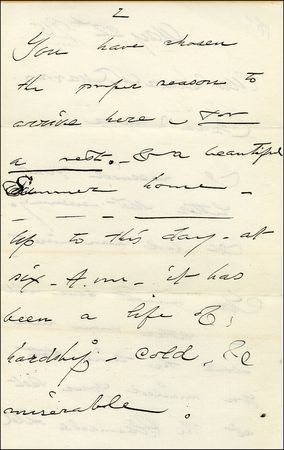 2
You have chosen
the proper season to
arrive here - for
a rest. - & a beautiful
Summer home -
- - - ———
Up to this day - at
six - A.m - it has
been a life of;
hardship - cold, &c
miserable.